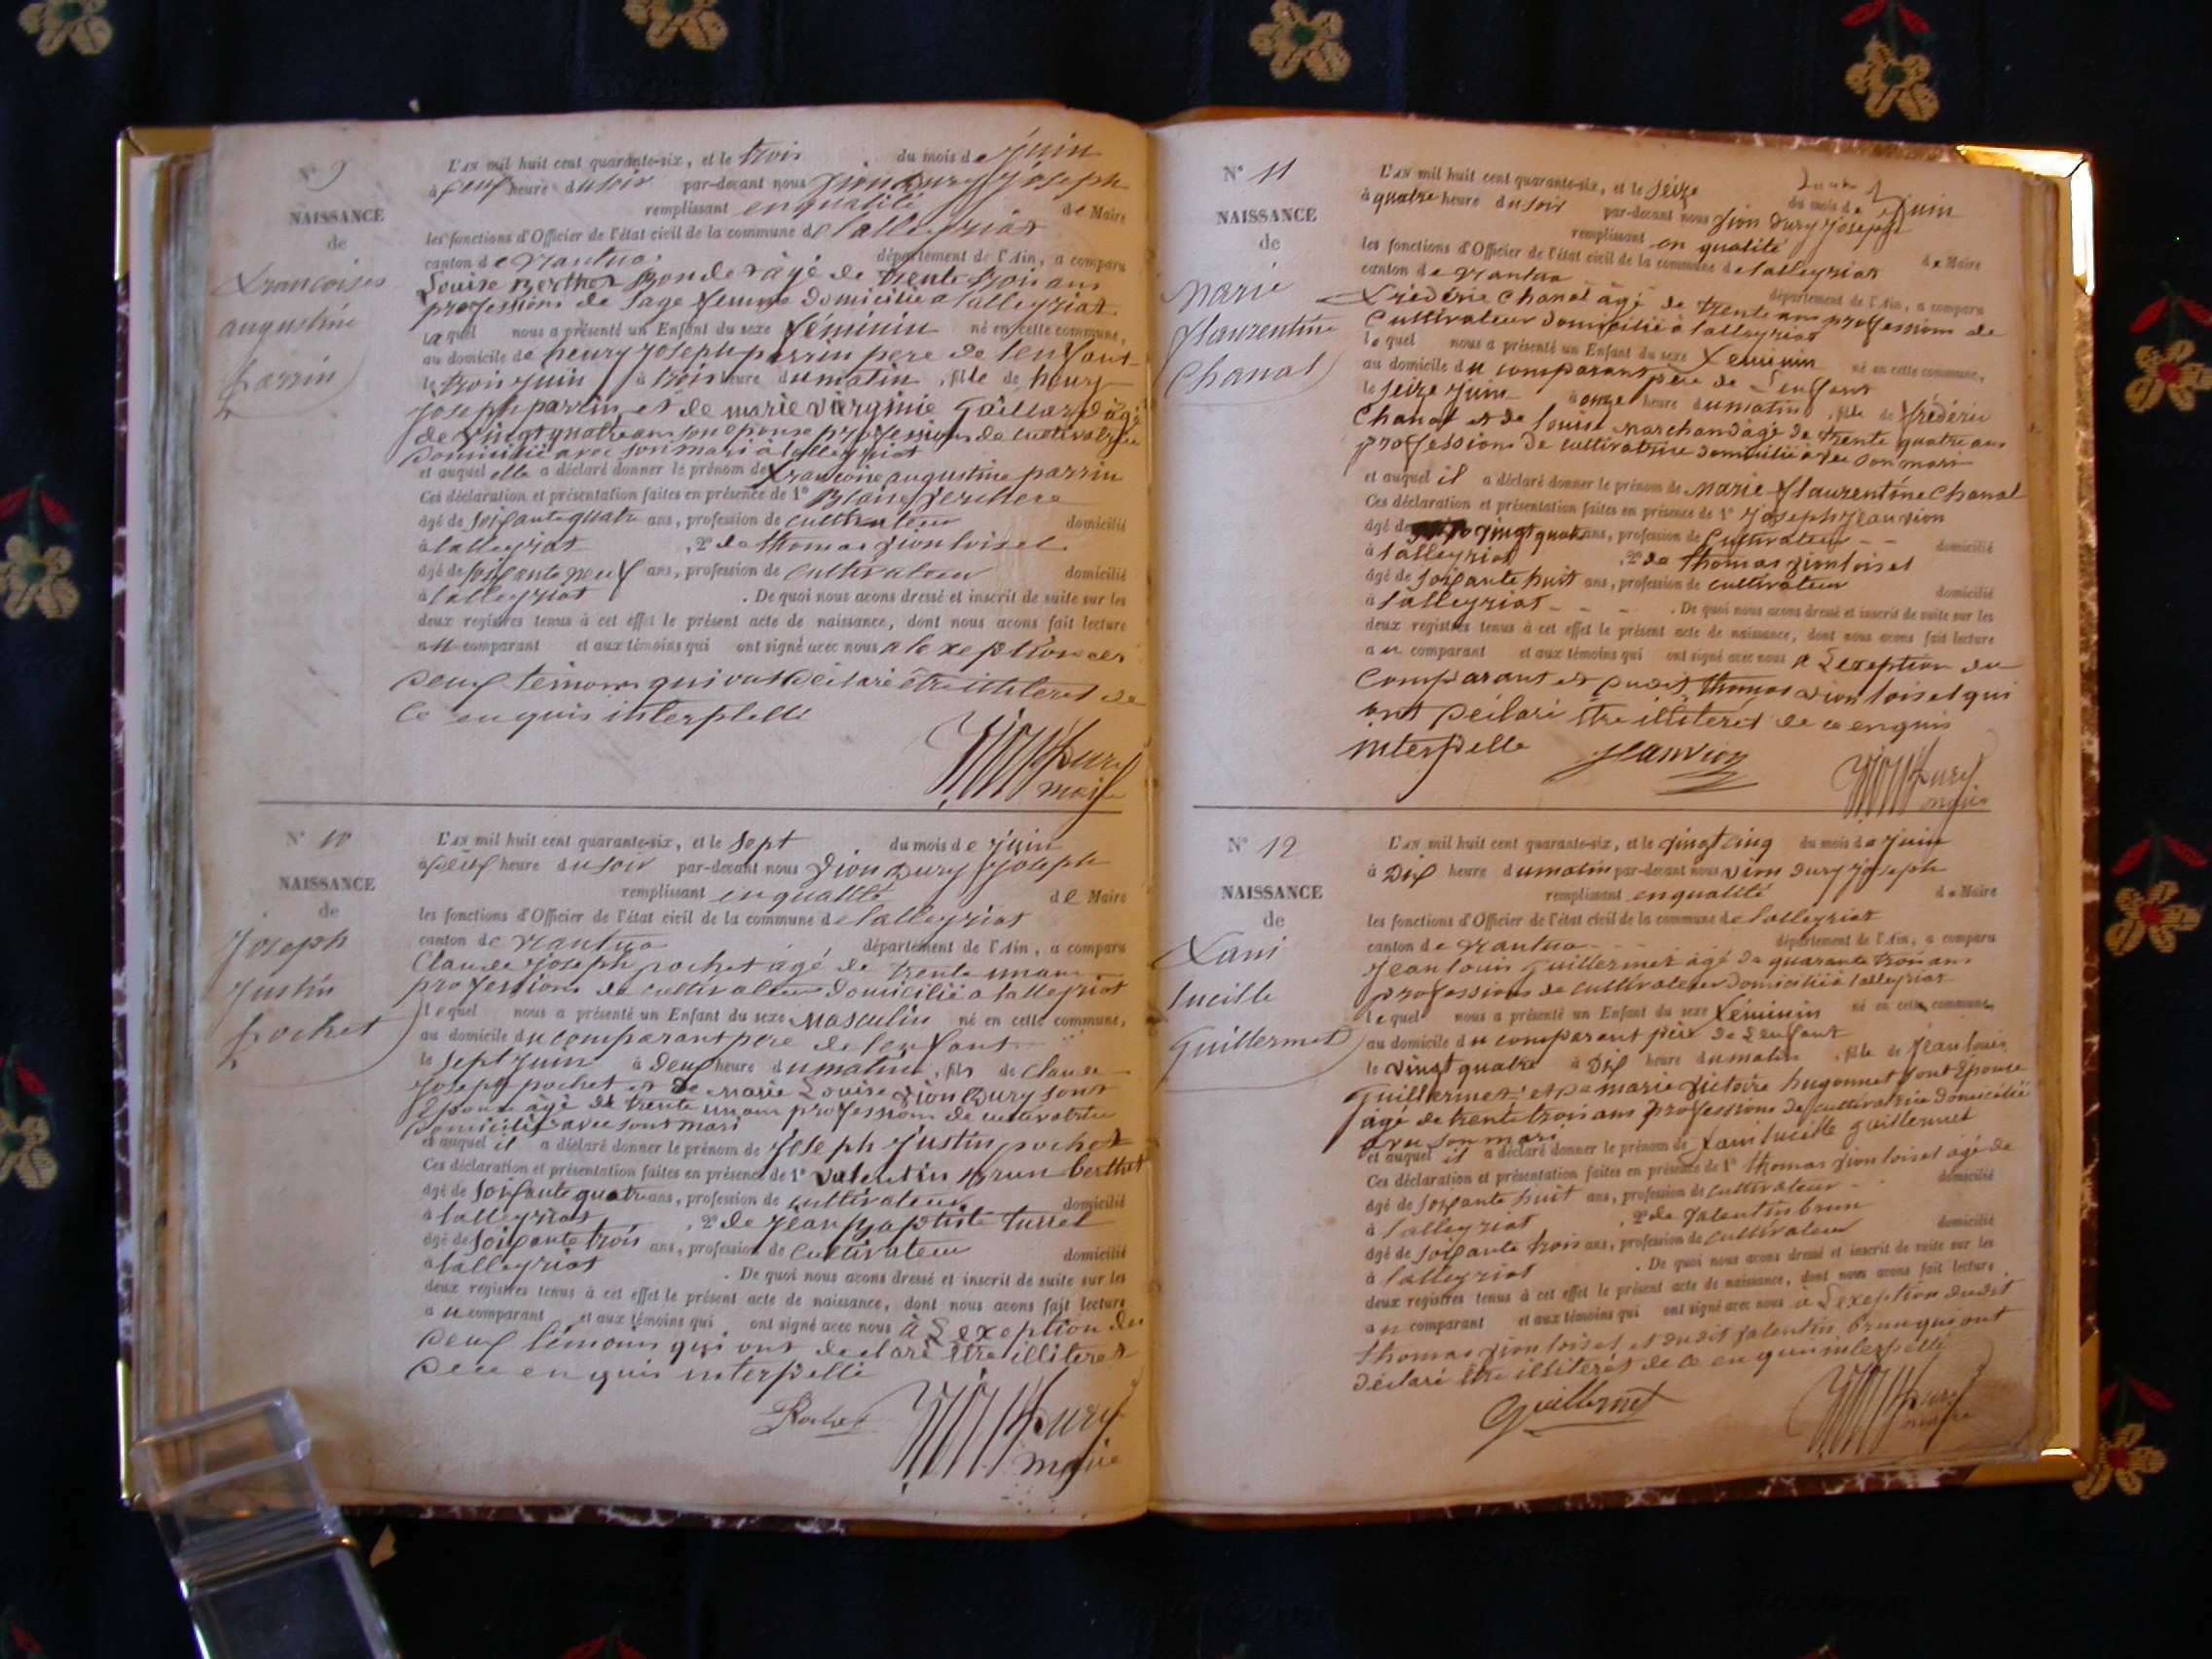 N° 9
NAISSANCE
de
françoise
augustine
parrin
L'AN mil huit cent quarante-six, et le trois du mois de juin
à neuf heure du soir par-devant nous Vion Dury Joseph
remplissant en qualité de Maire
les fonctions d'Officier de l'état civil de la commune de lalleyriat
canton de nantua département de l'Ain, a comparu
Louise Berthet âgé de trente trois ans
professions de sage femme domicilié a lalleyriat
laquel nous a présenté un Enfant du sexe féminin né en cette commune,
au domicile de henry Joseph parrin pere de lenfant
le trois juin à trois heure du matin, fille de henry
Joseph parrin et de marie virginie Gaillard âgé
de vingt quatre ans son epouse professions de cultivatrice
domicilié avec son mari à lalleyriat
et auquel elle a déclaré donner le prénom de françoise augustine parrin
Ces déclaration et présentation faites en présence de 1° Blaise
âgé de soixante quatre ans, profession de cultivateur domicilié
à lalleyriat, 2° de thomas vion loisel
âgé de soixante neuf ans, profession de cultivateur domicilié
à lalleyriat. De quoi nous avons dressé et inscrit de suite sur les
deux registres tenus à cet effet le présent acte de naissance, dont nous avons fait lecture
au comparant et aux témoins qui ont signé avec nous a lexeption des
deux témoins qui ont déclaré être illiteret de
ce enquis interpellé
Vion Dury
maire
N° 10
NAISSANCE
de
Joseph
Justin
pochet
L'AN mil huit cent quarante-six, et le sept du mois de juin
à deux heure du soir par-devant nous Vion Dury Joseph
remplissant en qualité de Maire
les fonctions d'Officier de l'état civil de la commune de lalleyriat
canton de nantua département de l'Ain, a comparu
Claude Joseph pochet âgé de trente un ans
professions de cultivateur domicilié a lalleyriat
lequel nous a présenté un Enfant du sexe masculin né en cette commune,
au domicile du comparant pere de lenfant
le sept juin à deux heure du matin, fils de claude
Joseph pochet et de marie Louise Vion Dury sont
Epouse âgé de trente un ans professions de cultivatrice
domicilié avec sont mari
et auquel il a déclaré donner le prénom de Joseph Justin pochet
Ces déclaration et présentation faites en présence de 1° valentin Brun berthet
âgé de soixante quatre ans, profession de cultivateur domicilié
à lalleyriat, 2° de Jean Baptiste tussel
âgé de soixante trois ans, profession de cultivateur domicilié
à lalleyriat. De quoi nous avons dressé et inscrit de suite sur les
deux registres tenus à cet effet le présent acte de naissance, dont nous avons fait lecture
au comparant et aux témoins qui ont signé avec nous à Lexeption des
deux témoins qui ont déclaré être illiteret
de ce enquis interpellé
Pochet Vion Dury
maire
N° 11
NAISSANCE
de
marie
flaurentine
Chanal
L'AN mil huit cent quarante-six, et le seize du mois de juin
à quatre heure du soir par-devant nous Vion Dury Joseph
remplissant en qualité de Maire
les fonctions d'Officier de l'état civil de la commune de lalleyriat
canton de nantua département de l'Ain, a comparu
frédéric Chanal âgé de trente ans professions de
Cultivateur domicilié à lalleyriat
lequel nous a présenté un Enfant du sexe feminin né en cette commune,
au domicile du comparant père de Lenfant
le seize juin à onze heure du matin, fille de frédéric
Chanal et de louise marchand âgé de trente quatre ans
professions de cultivatrice domicilié avec son mari
et auquel il a déclaré donner le prénom de marie flaurentine Chanal
Ces déclaration et présentation faites en présence de 1° Joseph Jeanvion
âgé de vingt quatre ans, profession de Cultivateur domicilié
à lalleyriat, 2° de thomas vion loisel
âgé de soixante huit ans, profession de cultivateur domicilié
à lalleyriat. De quoi nous avons dressé et inscrit de suite sur les
deux registres tenus à cet effet le présent acte de naissance, dont nous avons fait lecture
au comparant et aux témoins qui ont signé avec nous à Lexeption du
comparant et dudit thomas vion loisel qui
ont déclaré être illiteret de ce enquis
interpellé Jeanvion Vion Dury
maire
N° 12
NAISSANCE
de
fani
lucille
Guillermet
L'AN mil huit cent quarante-six, et le vingt cinq du mois de juin
à Dix heure du matin par-devant nous Vion Dury joseph
remplissant en qualité de Maire
les fonctions d'Officier de l'état civil de la commune de lalleyriat
canton de nantua département de l'Ain, a comparu
Jean louis Guillermet âgé de quarante trois ans
professions de cultivateur domicilié à lalleyriat
lequel nous a présenté un Enfant du sexe féminin né en cette commune,
au domicile du comparant père de Lenfant
le vingt quatre à Dix heure du matin, fille de Jean louis
Guillermet et de marie victoire hugonnet sont Epouse
âgé de trente trois ans professions de cultivatrice domicilié
avec son mari
et auquel il a déclaré donner le prénom de fani lucille guillermet
Ces déclaration et présentation faites en présence de 1° thomas vion loisel âgé de
âgé de soixante huit ans, profession de cultivateur domicilié
à lalleyriat, 2° de valentin brun
âgé de soixante trois ans, profession de cultivateur domicilié
à lalleyriat. De quoi nous avons dressé et inscrit de suite sur les
deux registres tenus à cet effet le présent acte de naissance, dont nous avons fait lecture
au comparant et aux témoins qui ont signé avec nous à Lexeption dudit
thomas vion loisel et dudit valentin brun qui ont
déclaré être illiteret de ce enquis interpellé
Guillermet Vion Dury
maire